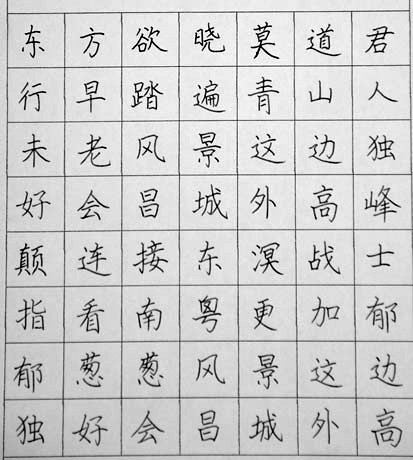 东方欲晓莫道君
行早踏遍青山人
未老风景这边独
好会昌城外高峰
颠连接东溟战士
指看南粤更加郁
郁葱葱风景这边
独好会昌城外高